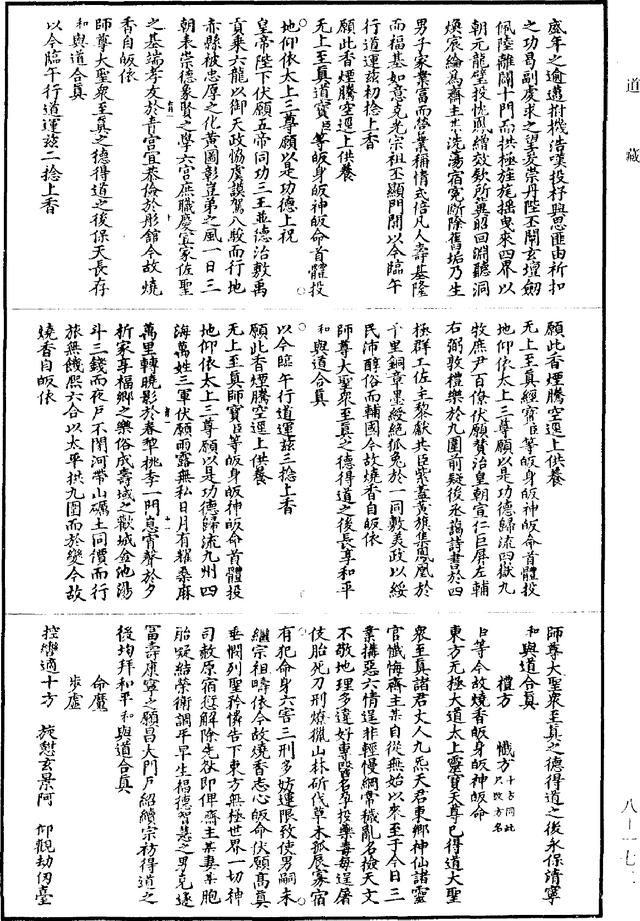 道藏
八—一七
盛年之逾邁對機浩嘆投杼興思匪由祈扣
之功曷副虔求之望爰崇丹陛丕闡玄壇劒
佩陸離闢十門而拱極旌旄搖曳來四界以
朝元龍壁投忱鳳繒效欵所冀昭回淵聽洞
煥宸綸為齋主某洗蕩宿寃斷除舊垢乃生
男子家業富而營業稱情式倍凡人壽基隆
而福基如意克光宗祖丕顯門閭以今臨午
行道運茲初捻上香
願此香煙騰空逕上供養
无上至真道寶臣等皈身皈神皈命首體投
地仰依太上三尊願以是功德上祝
皇帝陛下伏願五帝同功三王並德治敷禹
貢乘六龍以御天政恊虞謨駕八駿而行地
赤縣被忠厚之化黃圖彰豈弟之風一日三
朝表崇德象賢之學六宮庶職慶宜家佐聖
之基端孝友於青宮宜恭儉於彤館今故燒
香自皈依
師尊大聖衆至真之德得道之後保天長存
和與道合真
以今臨午行道運茲二捻上香
願此香煙騰空逕上供養
无上至真經寶臣等皈身皈神皈命首體投
地仰依太上三尊願以是功德歸流四嶽九
牧庶尹百僚伏願贊治皇朝宣仁巨屏左輔
右弼敦禮樂於九圍前疑後丞謁詩書於四
極群工佐主黎獻共臣紫蓋黃旗集鳳凰於
千里銅章墨綬絕狐兔於一同敷美政以綏
民沛醇俗而輔國今故燒香自皈依
師尊大聖衆至真之德得道之後長享和平
和與道合真
以今臨午行道運茲三捻上香
願此香煙騰空逕上供養
无上至真師寶臣等皈身皈神皈命首體投
地仰依太上三尊願以是功德歸流九州四
海萬姓三軍伏願雨露無私日月有耀桑麻
萬里轉曉影於春犂桃李一門息宵聲於夕
析家享福鄉之樂俗成壽域之歡城金池湯
斗三錢而夜戶不閉河帶山礪土同價而行
旅無饑熙六合以太平拱九圍而於變今故
燒香自皈依
師尊大聖衆至真之德得道之後永保清寧
和與道合真
禮方 懺方十方同此只改方名
臣等今故燒香皈身皈神皈命
東方无極大道太上靈寶天尊已得道大聖
衆至真諸君丈人九炁天君東鄉神仙諸靈
官懺悔齋主某自從無始以來至于今日三
業搆惡六情逞非輕慢綱常穢亂名檢天文
不敬地理多違好專醫名孕投藥毒每逞屠
伎胎死刀刑燎獵山林斫伐草木孤辰寡宿
有犯命身六害三刑多妨運限致使男嗣未
繼宗祖疇依今故燒香志心皈命伏願高真
垂憫列聖矜憐告下東方無極世界一切神
司赦原宿愆解除先欲即俾齋主某妻某胞
胎凝結榮衛調平早生福德智慧之男克遂
富壽康寧之願昌大門戶紹續宗祊得道之
後均拜和平和與道合真
命魔
步虛
控轡適十方 旋憇玄景阿 仰觀劫仞臺